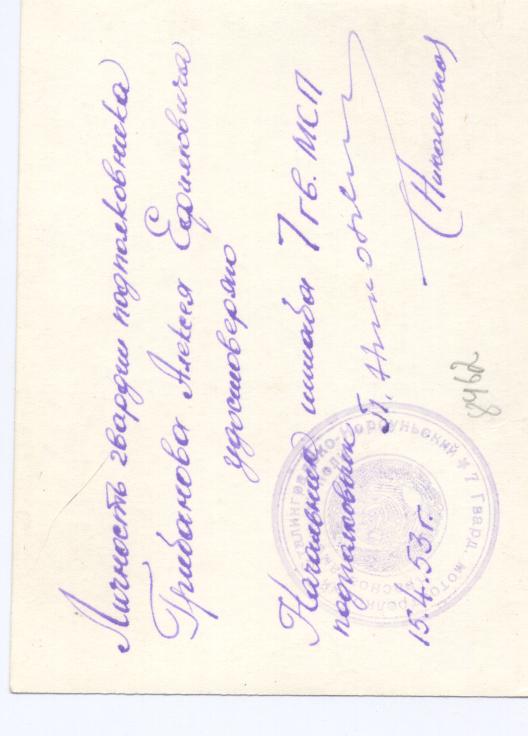 Личность гвардии подполковника
Грибанова Алексея Ефимовича
удостоверяю
Начальник штаба 7 гв. МСП
подполковник
Николенко
15.4.53 г.
8462
Корсуньский * 7 Гвард. мото